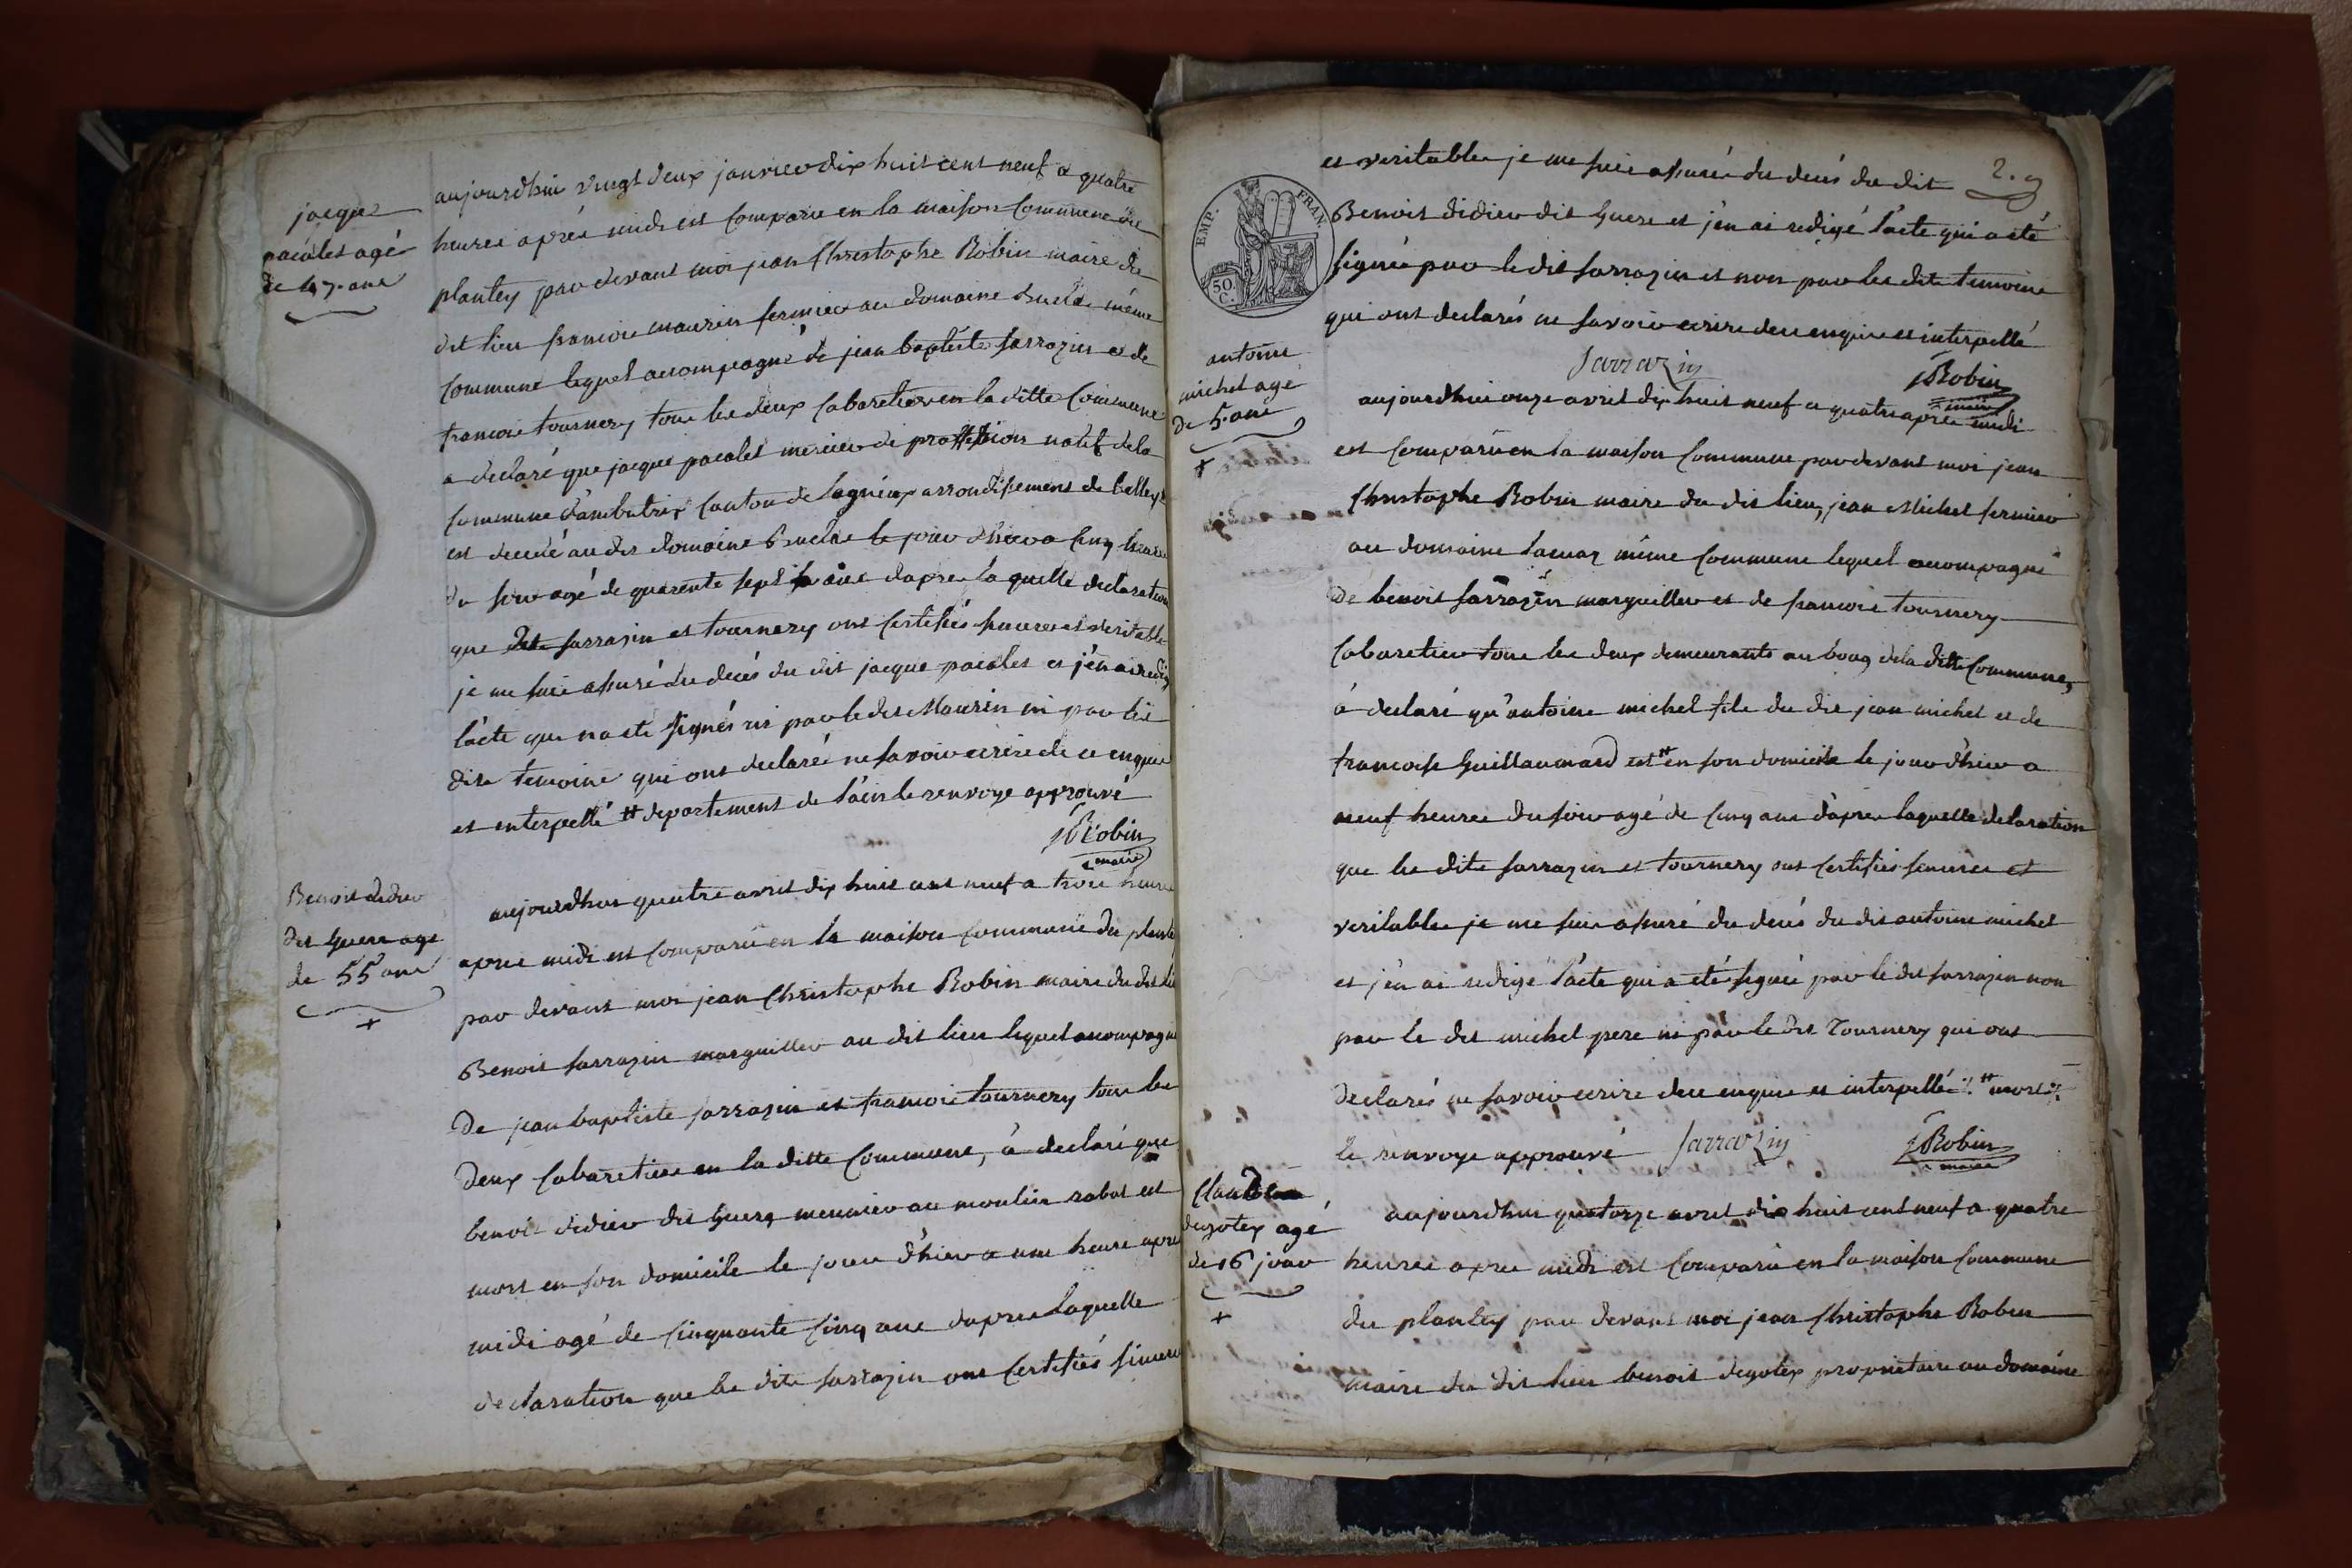 jacque
pacalet agé
de 47 ans
aujourdhui vingt deux janvier dix huit cent neuf a quatre
heures après midi est comparu en la maison commune du
plantey par devant moi jean Christophe Robin maire du
dit lieu francois maurin fermier au domaine même
commune lequel accompagné de jean baptiste sarrazin et de
francois tournery tous les deux cabaretiers en la ditte commune
a declaré que jacque pacalet mercier de proffession natif de la
commune d'ambutrix canton de lagnieux arrondissement de belley #
est decedé au dit domaine le jour d'hier a cinq heures
du soir agé de quarente sept ans dapres laquelle declaration
que dits sarrazin et tournery ont certifiés sincere et veritable
je me suis assuré du decés du dit jacque pacalet et j'en ai redigé
l'acte qui n'a eté signés ni par le dit Maurin ni par les
dits temoins qui ont declaré ne savoir ecrire de ce enquis
et interpellé # departement de l'ain le renvoye approuvé
Robin
maire
Benoit didier
dit Guere agé
de 55 ans
+
aujourdhui quatre avril dix huit cent neuf a trois heures
apres midi est comparu en la maison commune du plantey
par devant moi jean Christophe Robin maire du dit lieu
Benoit sarrazin marguiller au dit lieu lequel accompagné
de jean baptiste sarrazin et francois tournery tous les
deux cabaretiers en la ditte commune, à declaré que
benoit didier dit Guere meunier au moulin rabat est
mort en son domicile le jour d'hier a une heure apres
midi agé de cinquante cinq ans dapres laquelle
declaration que les dits sarrazin ont certifiés sincere
2.
EMP. FRAN.
50. C.
et veritable je me suis assuré du decés du dit
Benoit didier dit Guere et j'en ai redigé l'acte qui a eté
signé par le dit sarrazin et non par les dits temoins
qui ont declarés ne savoir ecrire de ce enquis et interpellé
Sarrazin
Robin
maire
antoine
michel agé
de 5 ans
+
aujourdhui onze avril dix huit neuf a quatre apres midi
est comparu en la maison commune par devant moi jean
Christophe Robin maire du dit lieu, jean Michel fermier
au domaine même commune lequel accompagné
de benoit sarrazin marguiller et de francois tournery
cabaretier tous les deux demeurants au bourg de la ditte commune,
à declaré qu'antoine michel fils du dit jean michel et de
francoise Guillaumard est # en son domicile le jour d'hier a
neuf heures du soir agé de cinq ans d'apres laquelle declaration
que les dits sarrazin et tournery ont certifiés sincere et
veritable je me suis assuré du decés du dit antoine michel
et j'en ai redigé l'acte qui a eté signé par le dit sarrazin non
par le dit michel pere ni par le dit Tournery qui ont
declarés ne savoir ecrire de ce enquis et interpellé # mort
le renvoye approuvé Sarrazin
Robin
maire
Claude
degotex agé
de 16 jour
+
aujourdhui quatorze avril dix huit cent neuf a quatre
heures apres midi est comparu en la maison commune
du plantey par devant moi jean Christophe Robin
maire du dit lieu benoit degotex proprietaire au domaine